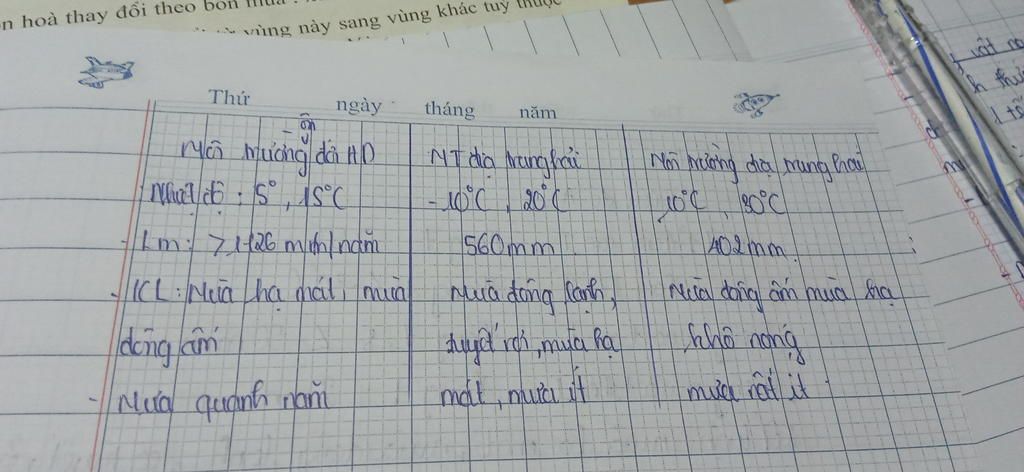 n hoà thay đổi theo bốn mùa.
vùng này sang vùng khác tuỳ thuộc
Thứ ngày tháng năm
ôn
Môi trường đới HD
MT địa trung hải
Môi trường địa trung hải
Nhiệt độ: 5°, 15°C
-10°C, 20°C
10°C, 20°C
- Lm: > 1126 mm/năm
560mm
402mm.
- KL: Mùa hạ mát, mùa
Mùa đông lạnh,
Mùa đông ấm mùa hạ
đông ấm
tuyết rơi, mùa hạ
khô nóng
- Mưa quanh năm
mát, mưa ít
mưa rất ít